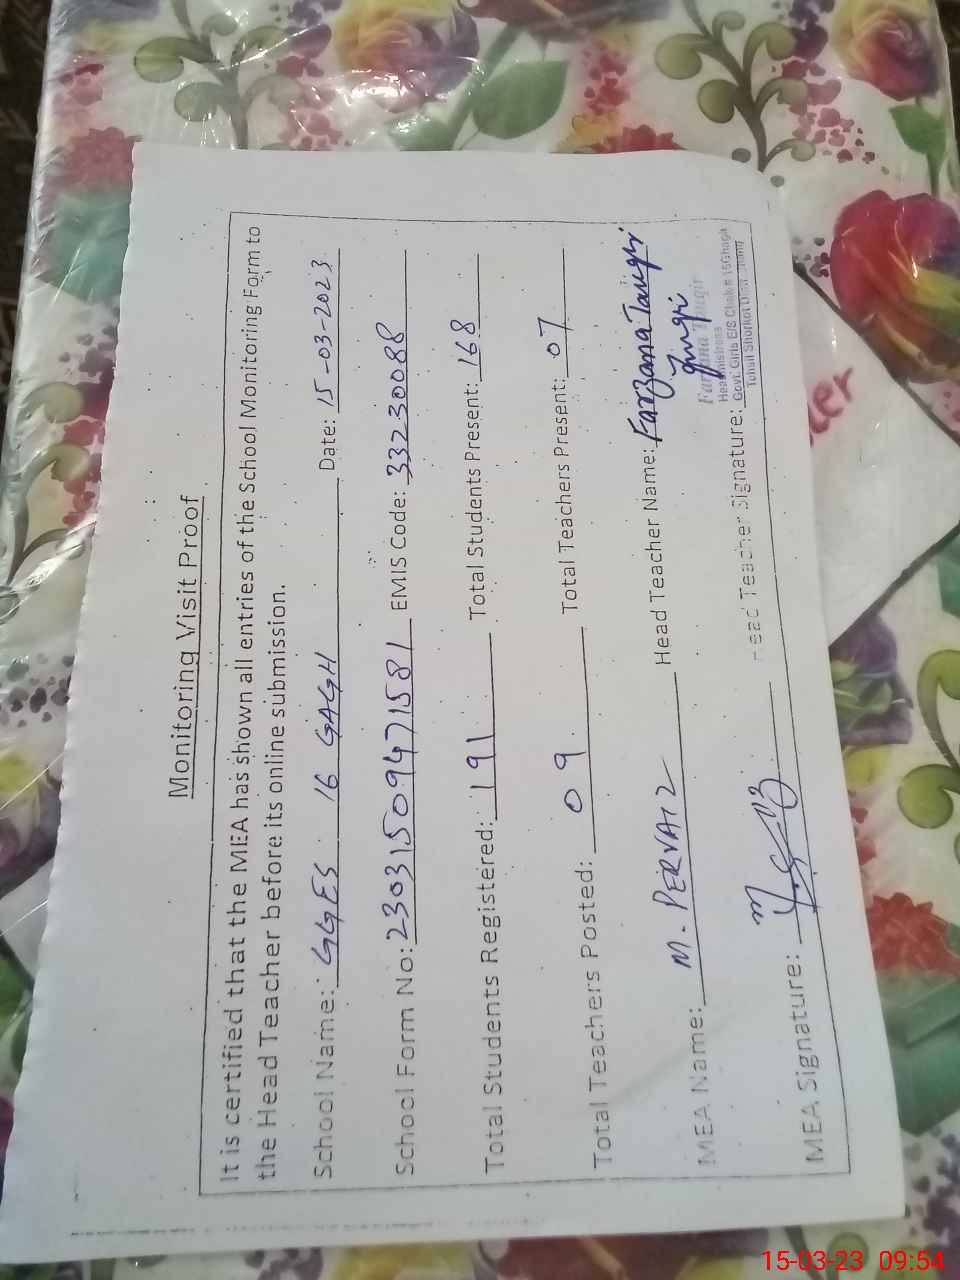 Monitoring Visit Proof
It is certified that the MEA has shown all entries of the School Monitoring Form to
the Head Teacher before its online submission.
School Name: GGES 16 GAGH Date: 15-03-2023
School Form No: 23031509471581 EMIS Code: 33230088
Total Students Registered: 191 Total Students Present: 168
Total Teachers Posted: 09 Total Teachers Present: 07
MEA Name: M. PERVAIZ Head Teacher Name: Farzana Tauqir
MEA Signature: Head Teacher Signature:
Farzana Tauqir
Headmistress
Govt: Girls E/S Chak # 16 Ghagh
Tehsil Shorkot Distt Jhang
15-03-23 09:54